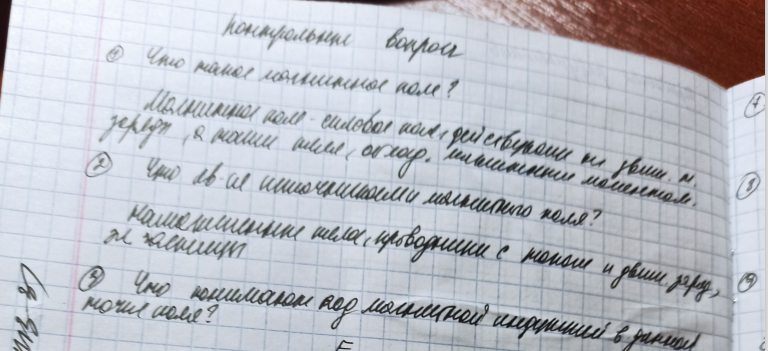 Контрольные вопросы
① Что такое магнитное поле?
Магнитное поле - силовое поле, действующее на движ. эл.
заряды, а также тела, облад. магнитным моментом.
② Что яв-ся источниками магнитного поля?
Намагниченные тела, проводники с током и движ. заряд.
эл частицы
③ Что понимают под магнитной индукцией в данной
точке поля?
7
8
9